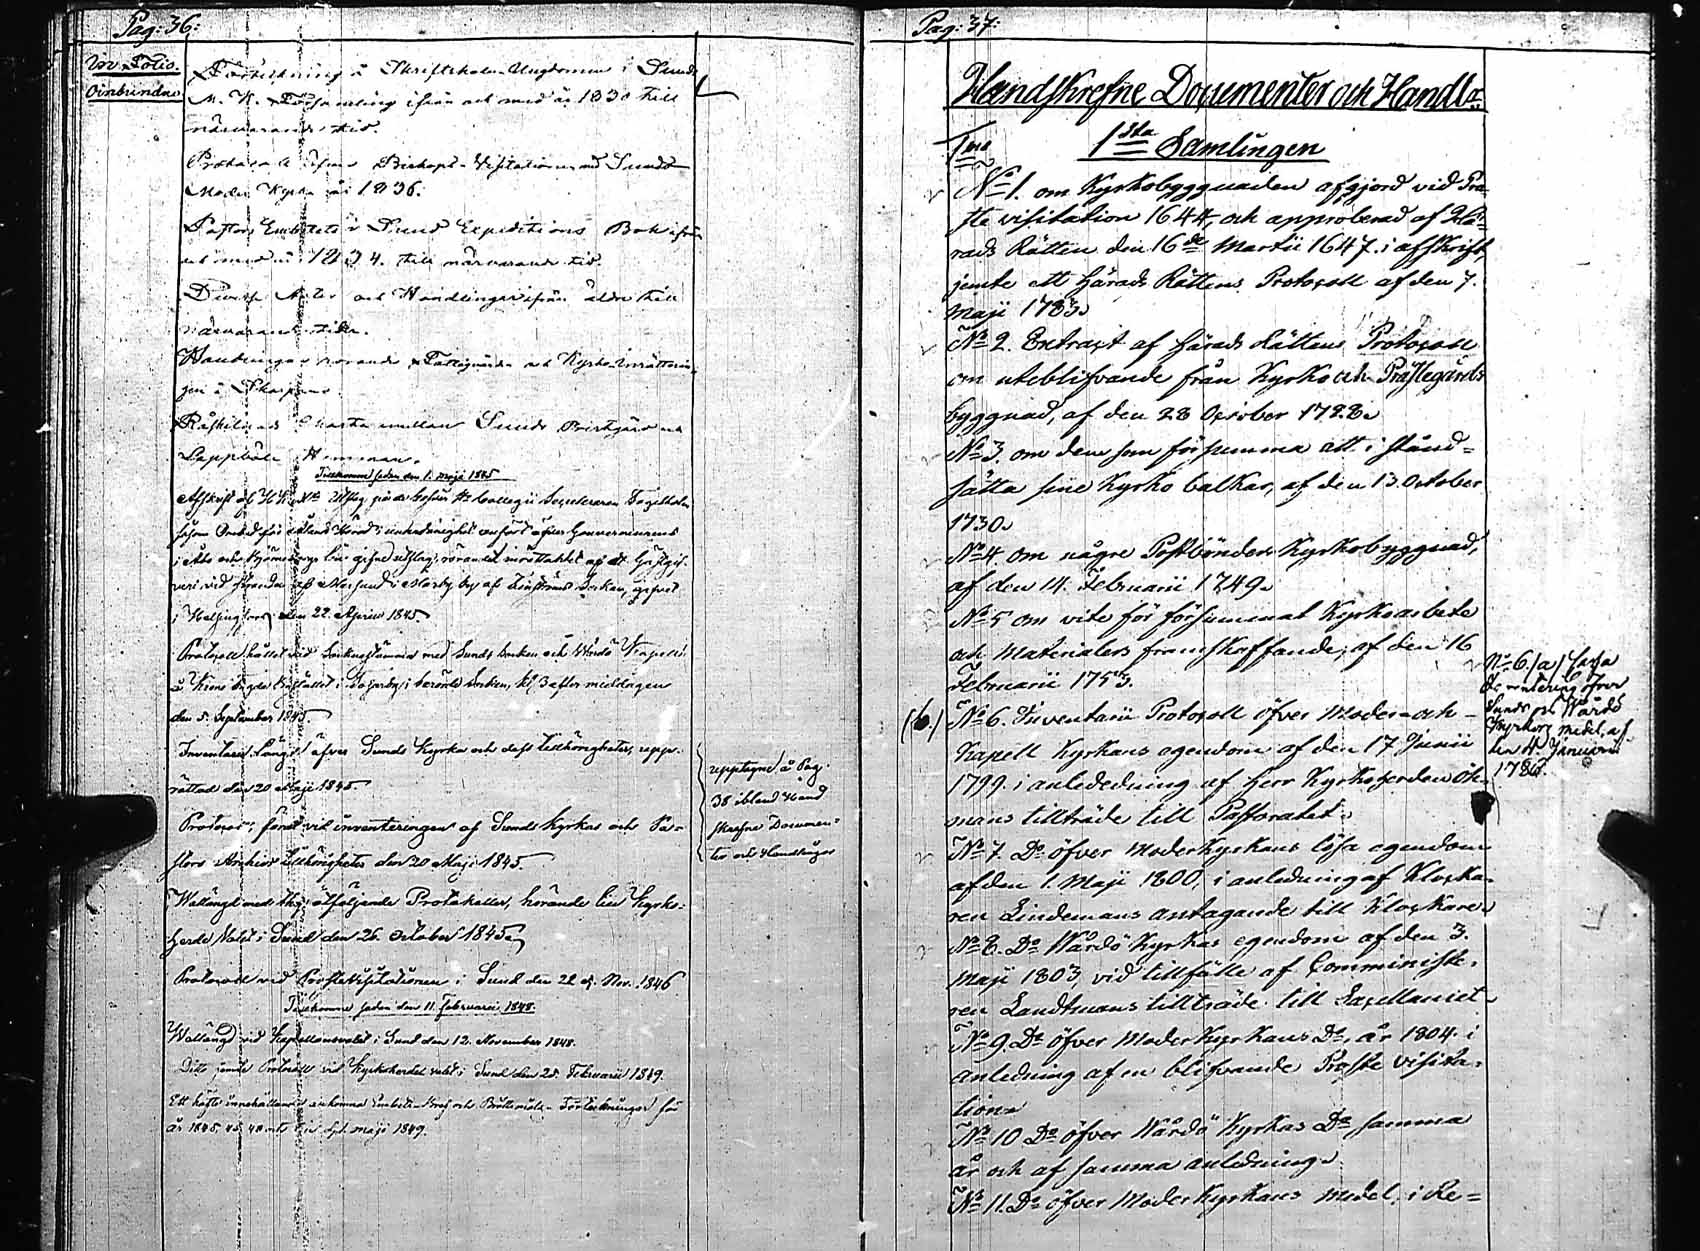 Pag: 36:
in Folio.
Oinbundne
Förteckning å Skriftskole-Ungdomen i Sunds
M. K. Församling ifrån och med år 1830 till
närvarande tid.
Protocoll öfver Biskops-Visitationen med Sunds
Moder Kyrka år 1836.
Pastors Embetets i Sund Expeditions Bok ifrån
och med år 1834. till närvarande tid.
Diverse Acter och Handlingar ifrån äldre till
närvarande tider.
Handlingar rörande Kyrko-Inrättnin-
gen i
Råskilnads Charta emellan Sunds Prestgård och
Lappböle Hemman.
Tillkomne sedan den 1. Maji 1845
Afskrift af Utslag på de besvär Collegii Secreteraren
såsom Ombud för Ålands Härad i underdånighet anfört öfver Gouverneurens
i Åbo och Björneborgs län gifne utslag, rörande inrättandet af ett Gästgif-
veri vid stranden af Marsund i Marby by af Socken, gifvet
i Helsingfors den 22 Aprill 1845.
Protocoll hållet vid Sockenstämma med Sunds Socken och Wårdö Capell
den 5. September 1845.
Inventarii Längd öfver Sunds Kyrka och dess tillhörigheter, uppr-
rättad den 20 Maji 1845
Protocoll, fördt vid inventeringen af Sunds Kyrkas och Pa-
stors Archivs tillhörigheter den 20 Maji 1845.
upptagne å Pag.
38 ibland Hand
skrefne Documen-
ter och Handlingar
Wallängd med ty åtföljande Protokoller, hörande till Kyrko-
herde Valet i Sund den 26. October 1845.
Protocoll vid Prostevisitationen i Sund den 22 Nov. 1846
Tillkomne sedan den 11. Februarii 1848.
Wallängd vid Kapellansvalet i Sund den 12. November 1848.
Dito jemte Protocoll vid Kyrkoherde valet i Sund den 25. Februarii 1849.
Ett häfte innehållande ankomne Embets-Bref och Förteckningar för
år 1845. maji 1849.
Pag: 37:
Handskrefne Documenter och Handlr
1sta Samlingen
No 1. om Kyrkobyggnaden afgjord vid Pro-
ste visitation 1644, och approberad af Hä-
rads Rätten den 16de Martii 1647. i afskrift,
jemte ett Härads Rättens Protocoll af den 7.
Maji 1783.
No 2. Extract af Härads Rättens Protocoll
om uteblifvande från Kyrko och Prästegårds
byggnad, af den 28 October 1728.
No 3. om dem som försumma att i stånd-
sätta sine Kyrko balkar, af den 13. October
1730.
No 4. om någre Postbönders Kyrkobyggnad,
af den 14. Februarii 1749.
No 5 om vite för försummat Kyrkoarbete
och Materialers framskaffande, af den 16
Februarii 1753.
(b.) No 6. Inventarii Protocoll öfver Moder- och
Kapell Kyrkans egendom af den 17 Junii
1799. i anledning af Herr Kyrkoherden Öh-
mans tillträde till Pastoratet.
No 6. (a)
inventering öfver
Sunds och Wårdö
Kyrkors medel, af
den 11. Januarii
1786.
No 7. Do öfver Moder Kyrkans lösa egendom
af den 1. Maji 1800, i anledning af Klocka-
ren Lindemans antagande till Klockare.
No 8. Do Wårdö Kyrkas egendom af den 3.
Maji 1803, vid tillfälle af Comministe-
ren Landtmans tillträde till Capellaniet.
No 9. Do öfver Moder Kyrkans Do, år 1804. i
anledning af en blifvande Proste visita-
tion.
No 10 Do öfver Wårdö Kyrkas Do samma
år och af samma anledning.
No 11. Do öfver Moder Kyrkans medel, i Re-